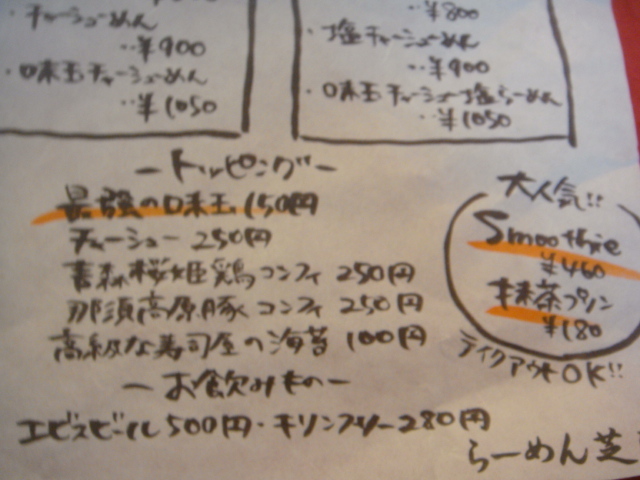 チャーシューめん
‥¥900
・味玉チャーシューめん
‥¥1050
‥¥800
・塩チャーシューめん
‥¥900
・味玉チャーシュー塩らーめん
‥¥1050
ートッピングー
最強の味玉 150円
チャーシュー 250円
青森桜姫鶏コンフィ 250円
那須高原豚コンフィ 250円
高級な寿司屋の海苔 100円
ーお飲みものー
エビスビール 500円・キリンフリー 280円
大人気!!
Smoothie
¥460
抹茶プリン
¥180
テイクアウトOK!!
らーめん芝